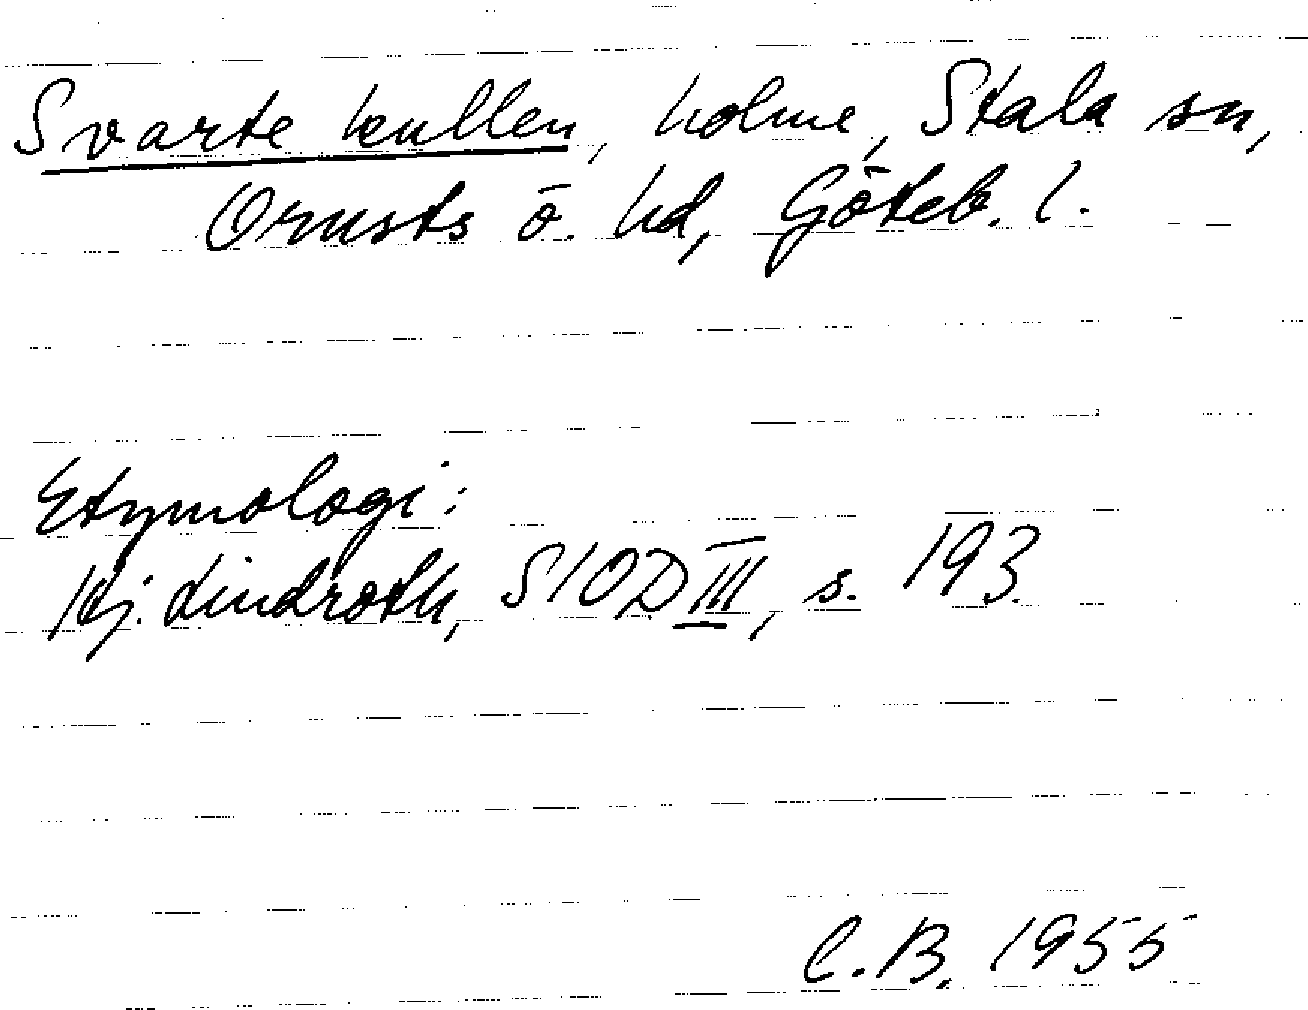 Svarte kullen, holme, Stala sn,
Orusts ö. hd, Göteb. l.
Etymologi:
Hj. Lindroth, SIOD III, s. 193.
C.B. 1955